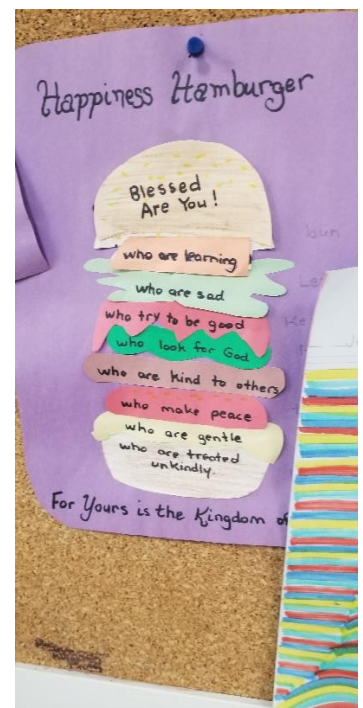 Happiness Hamburger
Blessed
Are You!
who are learning
who are sad
who try to be good
who look for God
who are kind to others
who make peace
who are gentle
who are treated
unkindly.
For Yours is the Kingdom of
bun